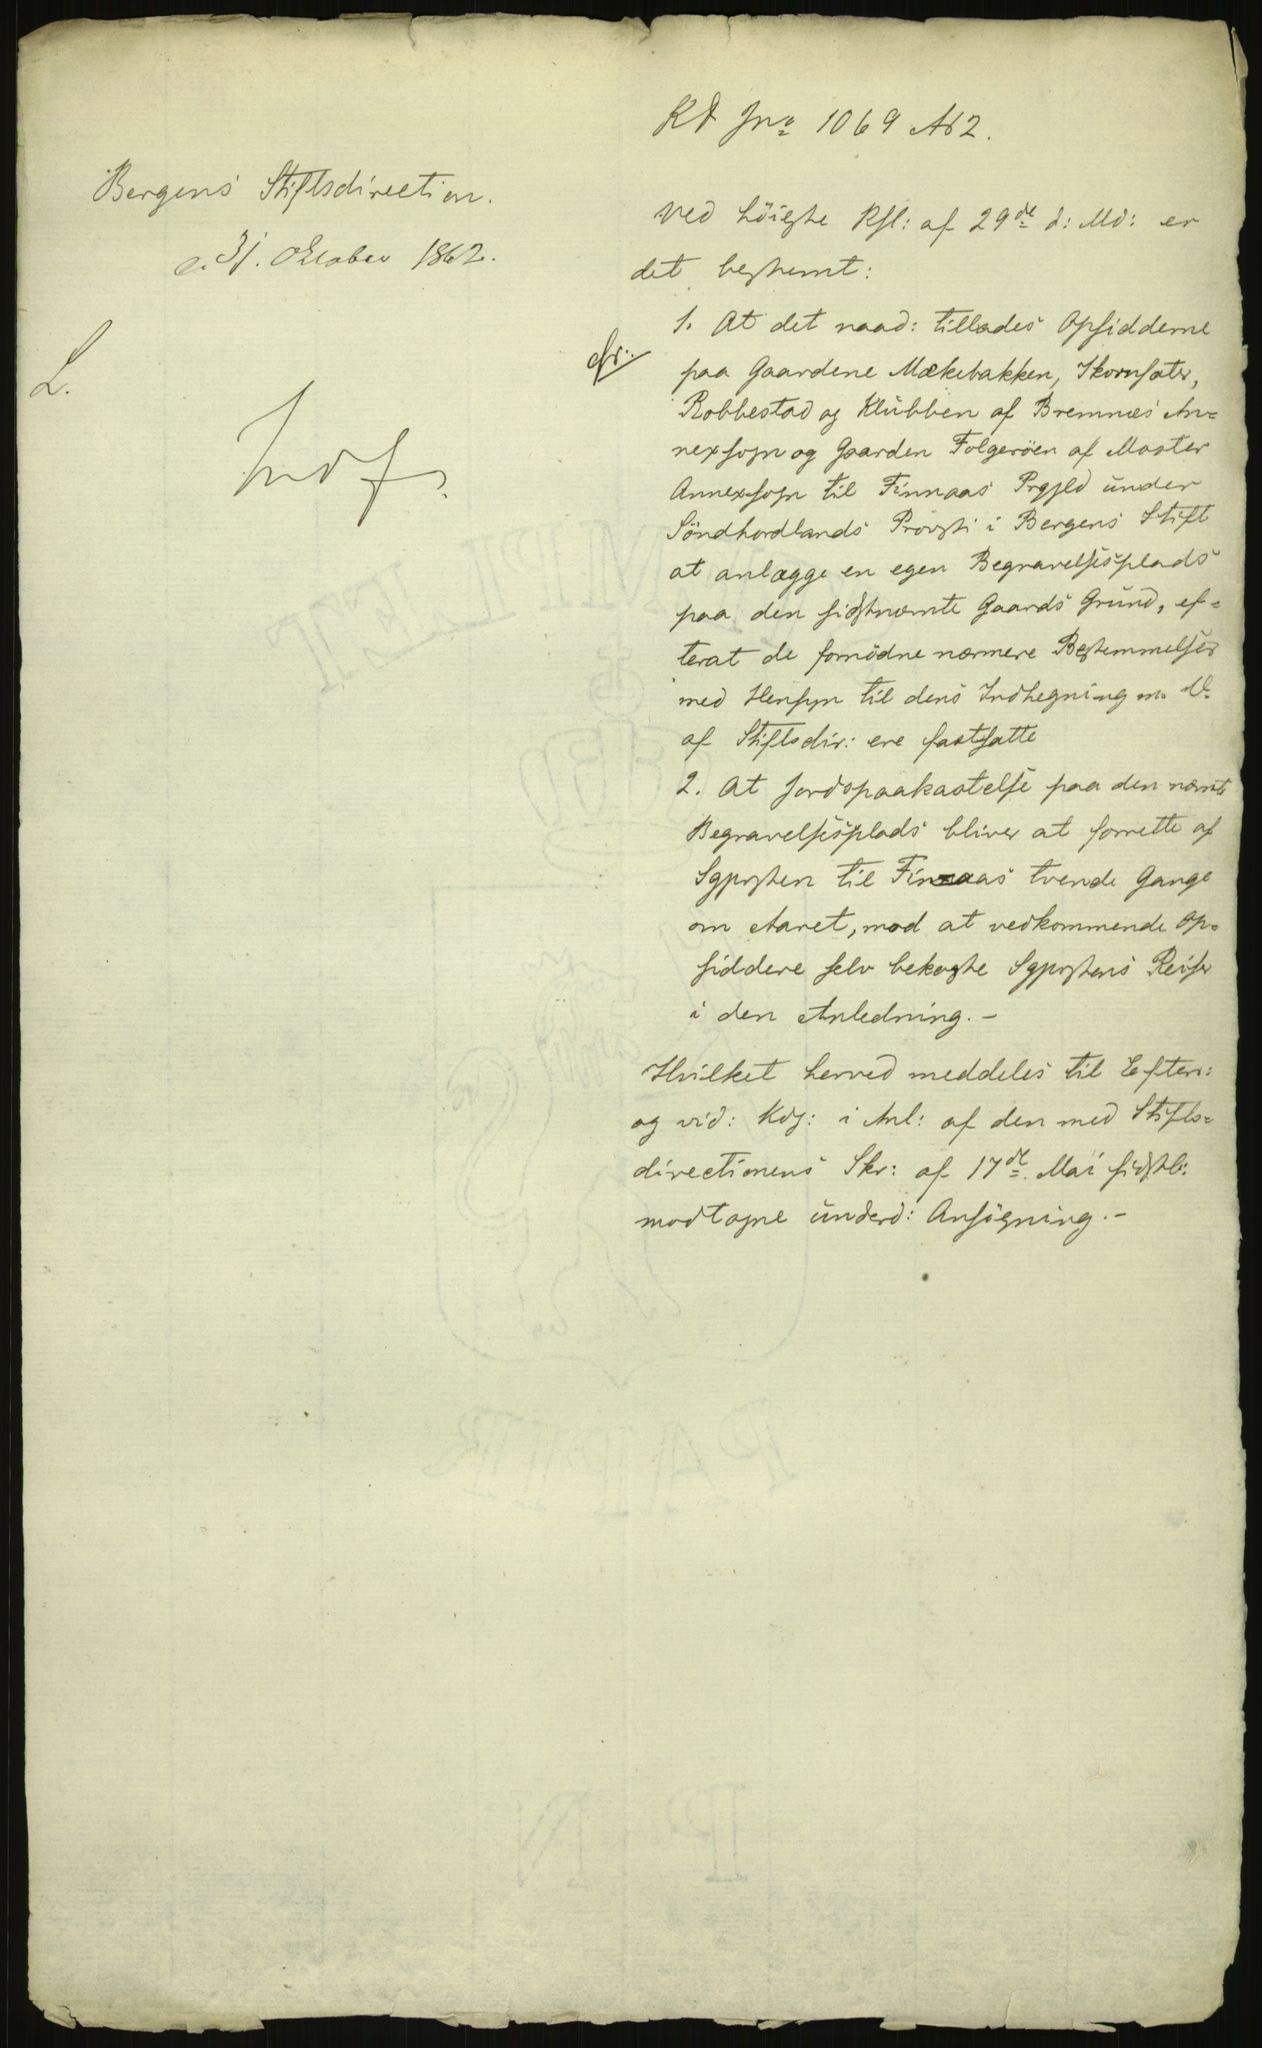 KD Jn<sup>o</sup> 1069 A62.
Bergens Stiftsdirection.
d. 31. Oktober 1862.
L.
Ved høieste Rsl: af 29<sup>de</sup> d: Md: er
det bestemt:
1. At det naad: tillades Opsidderne
paa Gaardene Mækebakken, Skornsæter,
Robbestad og Klubben af Bremnæs An=
nexsogn og Gaarden Folgerøen af Moster
Annexsogn til Finnaas Prgjld under
Söndhordlands Provsti i Bergens Stift
at anlægge en egen Begravelsesplads
paa den sidstnævnte Gaards Grund, ef=
terat de fornödne nærmere Bestemmelser
med Hensyn til dens Indhegning m. V.
af Stiftsdir: ere fastsatte
2. At Jordspaakastelse paa den nævnte
Begravelsesplads bliver at forrette af
Sgprsten til Finnaas tvende Gange
om Aaret, mod at vedkommende Op=
siddere selv bekoste Sgprstens Reiser
i den Anledning. -
Hvilket herved meddeles til Efterr:
og vid: Kdg: i Anl: af den med Stifts=
directionens Skr: af 17<sup>de</sup> Mai sidstl:
modtagne underd: Ansögning. -